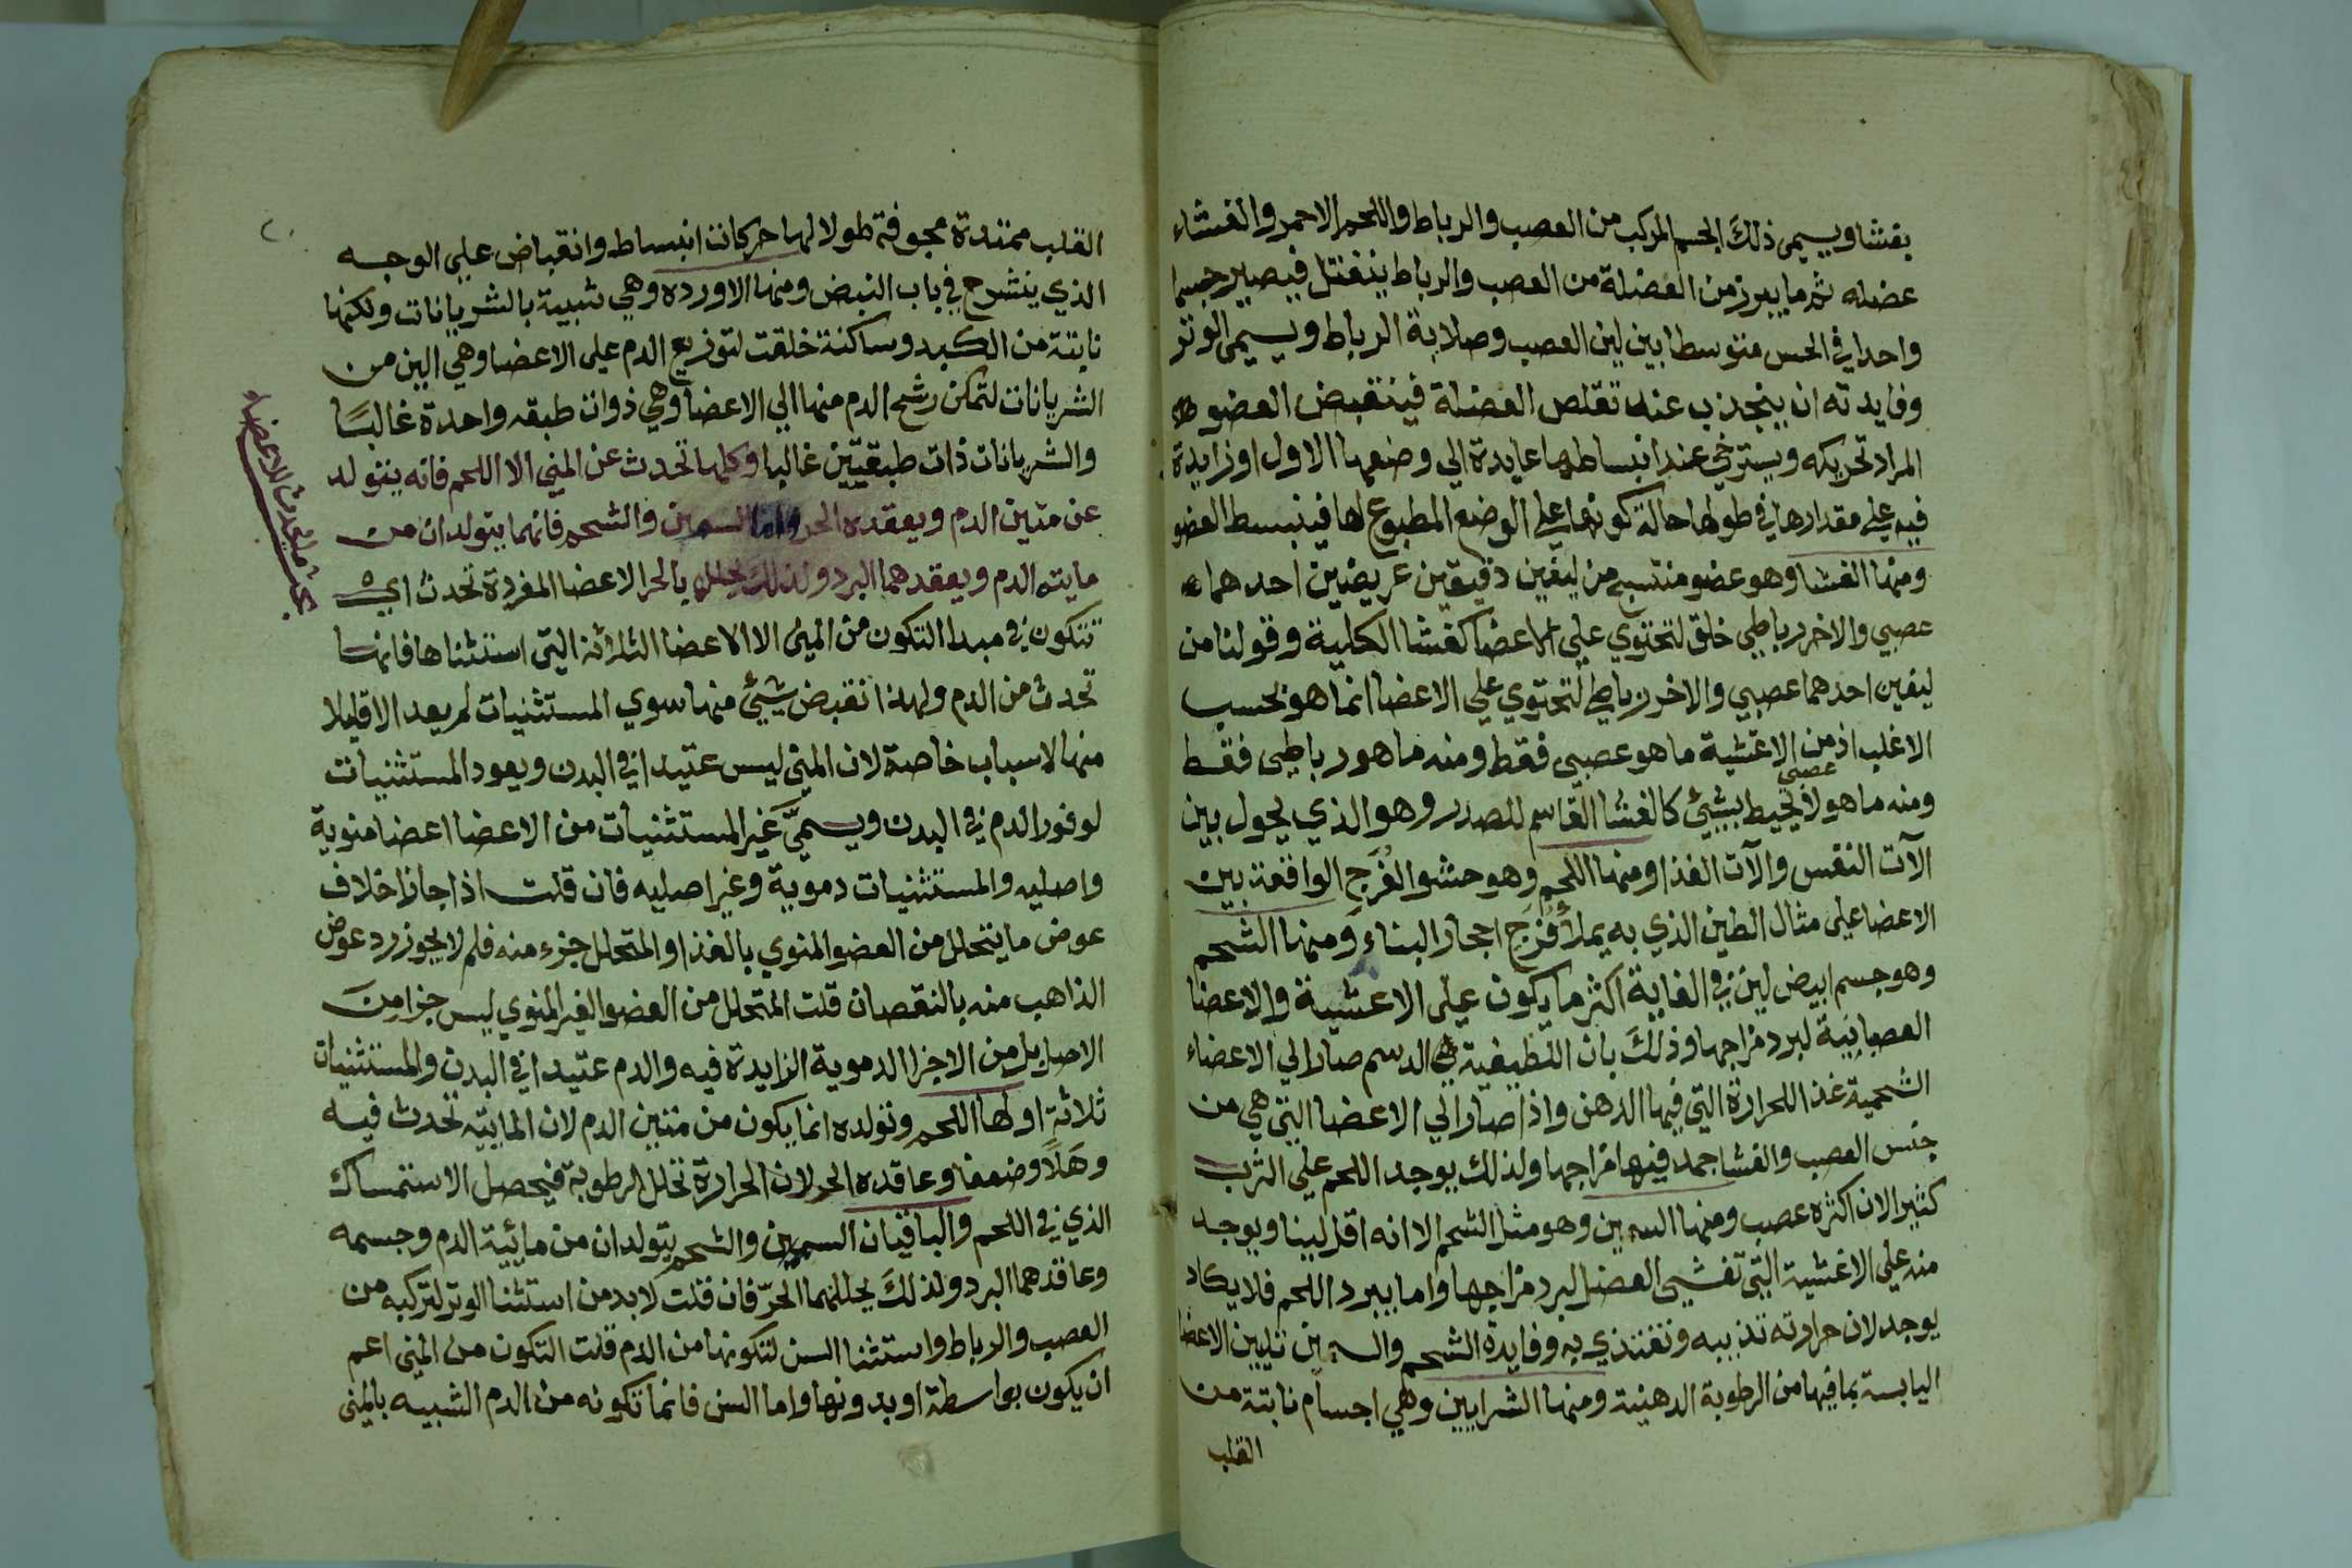 بغشا ويسمى ذلك الجسم المركب من العصب والرباط واللحم الاحمر والغشاء
عضله ثم ما يبرز من العضلة من العصب والرباط ينفتل فيصير جسما
واحدا في الحس متوسطا بين لين العصب وصلابة الرباط ويسمى الوتر
وفايدته ان ينجذب عند تقلص العضلة فينقبض العضو
المراد تحريكه ويسترخي عند انبساطها عايدة الي وضعها الاول او زايدة
فيه علي مقدارها في طولها حالة كونها علي الوضع المطبوع لها فينبسط العضو
ومنها الغشا وهو عضو منتسج من ليفين دقيقين عريضين احدهما
عصبي والاخر رباطي خلق لتحتوي علي الاعضا كغشا الكلية وقولنا من
ليفين احدهما عصبي والاخر رباطي لتحتوي علي الاعضا انما هو بحسب
الاغلب اذ من الاغشية ما هو عصبي فقط ومنه ما هو رباطي فقط
عصبي
ومنه ما هو لا يحيط بشيئ كالغشا القاسم للصدر وهو الذي يحول بين
الآت النفس والآت الغذا ومنها اللحم وهو حشو الفُرَج الواقعة بين
الاعضا علي مثال الطين الذي به يملأ فُرَج احجار البناء ومنها الشحم
وهو جسم ابيض لين في الغاية اكثر ما يكون علي الاغشية والاعضا
العصبانية لبرد مزاجها وذلك بان اللطيفية في الدسم صار الي الاعضاء
الشحمية غذا للحرارة التي فيها الدهن واذا صار الي الاعضا التي هي من
جنس العصب والغشا جمد فيها مزاجها ولذلك يوجد اللحم علي الثرب
كثيرا لان اكثره عصب ومنها السمين وهو مثل الشحم الا انه اقل لينا ويوجد
منه علي الاغشية التي تغشي العضل لبرد مزاجها واما ببرد اللحم فلا يكاد
يوجد لان حرارته تذيبه وتغتذي به وفايدة الشحم والسمين تليين الاعضا
اليابسة بما فيها من الرطوبة الدهنية ومنها الشرايين وهي اجسام نابتة من
القلب
القلب ممتدة مجوفة طولا لها حركات انبساط وانقباض علي الوجه
الذي ينشرح في باب النبض ومنها الاورده وهي شبيهة بالشريانات ولكنها
نابتة من الكبد وساكنة خلقت لتوزيع الدم علي الاعضا وهي الين من
الشريانات لتمكن رشح الدم منها الي الاعضا وهي ذوات طبقه واحدة غالبًا
والشريانات ذات طبقتين غالبا وكلها تحدث عن المني الا اللحم فانه يتولد
عن متين الدم ويعقده الحر واما السمين والشحم فانهما يتولدان من
مايته الدم ويعقدهما البرد ولذلك يحلل بالحر الاعضا المفردة تحدث اي
تتكون في مبدا التكون من المني الا الاعضا الثلاثة التي استثناها فانها
تحدث من الدم ولهذا انقبض شيئ منها سوي المستثنيات لم يعد الا قليلا
منها لاسباب خاصة لان المني ليس عتيدا في البدن ويعود المستثنيات
لوفور الدم في البدن ويسمي غير المستثنيات من الاعضا اعضا منوية
واصليه والمستثنيات دموية وغير اصليه فان قلت اذا جاز اخلاف
عوض ما يتحلل من العضو المنوي بالغذا والمتحلل جزء منه فلم لا يجوز رد عوض
الذاهب منه بالنقصان قلت المتحلل من العضو الغير المنوي ليس جزا من
الاصل بل من الاجزا الدموية الزايدة فيه والدم عتيدا في البدن والمستثنيات
ثلاثة اولها اللحم وتولده انما يكون من متين الدم لان المايته تحدث فيه
وهَلًا وضعفا وعاقده الحر لان الحرارة تحلل الرطوبة فيحصل الاستمساك
الذي في اللحم والباقيان السمين والشحم يتولدان من مائية الدم وجسمه
وعاقدهما البرد ولذلك يحللهما الحرّ فان قلت لا بد من استثنا الوتر لتركبه من
العصب والرباط واستثنا السن لتكونها من الدم قلت التكون من المني اعم
ان يكون بواسطة او بدونها واما السن فانما تكونه من الدم الشبيه بالمني